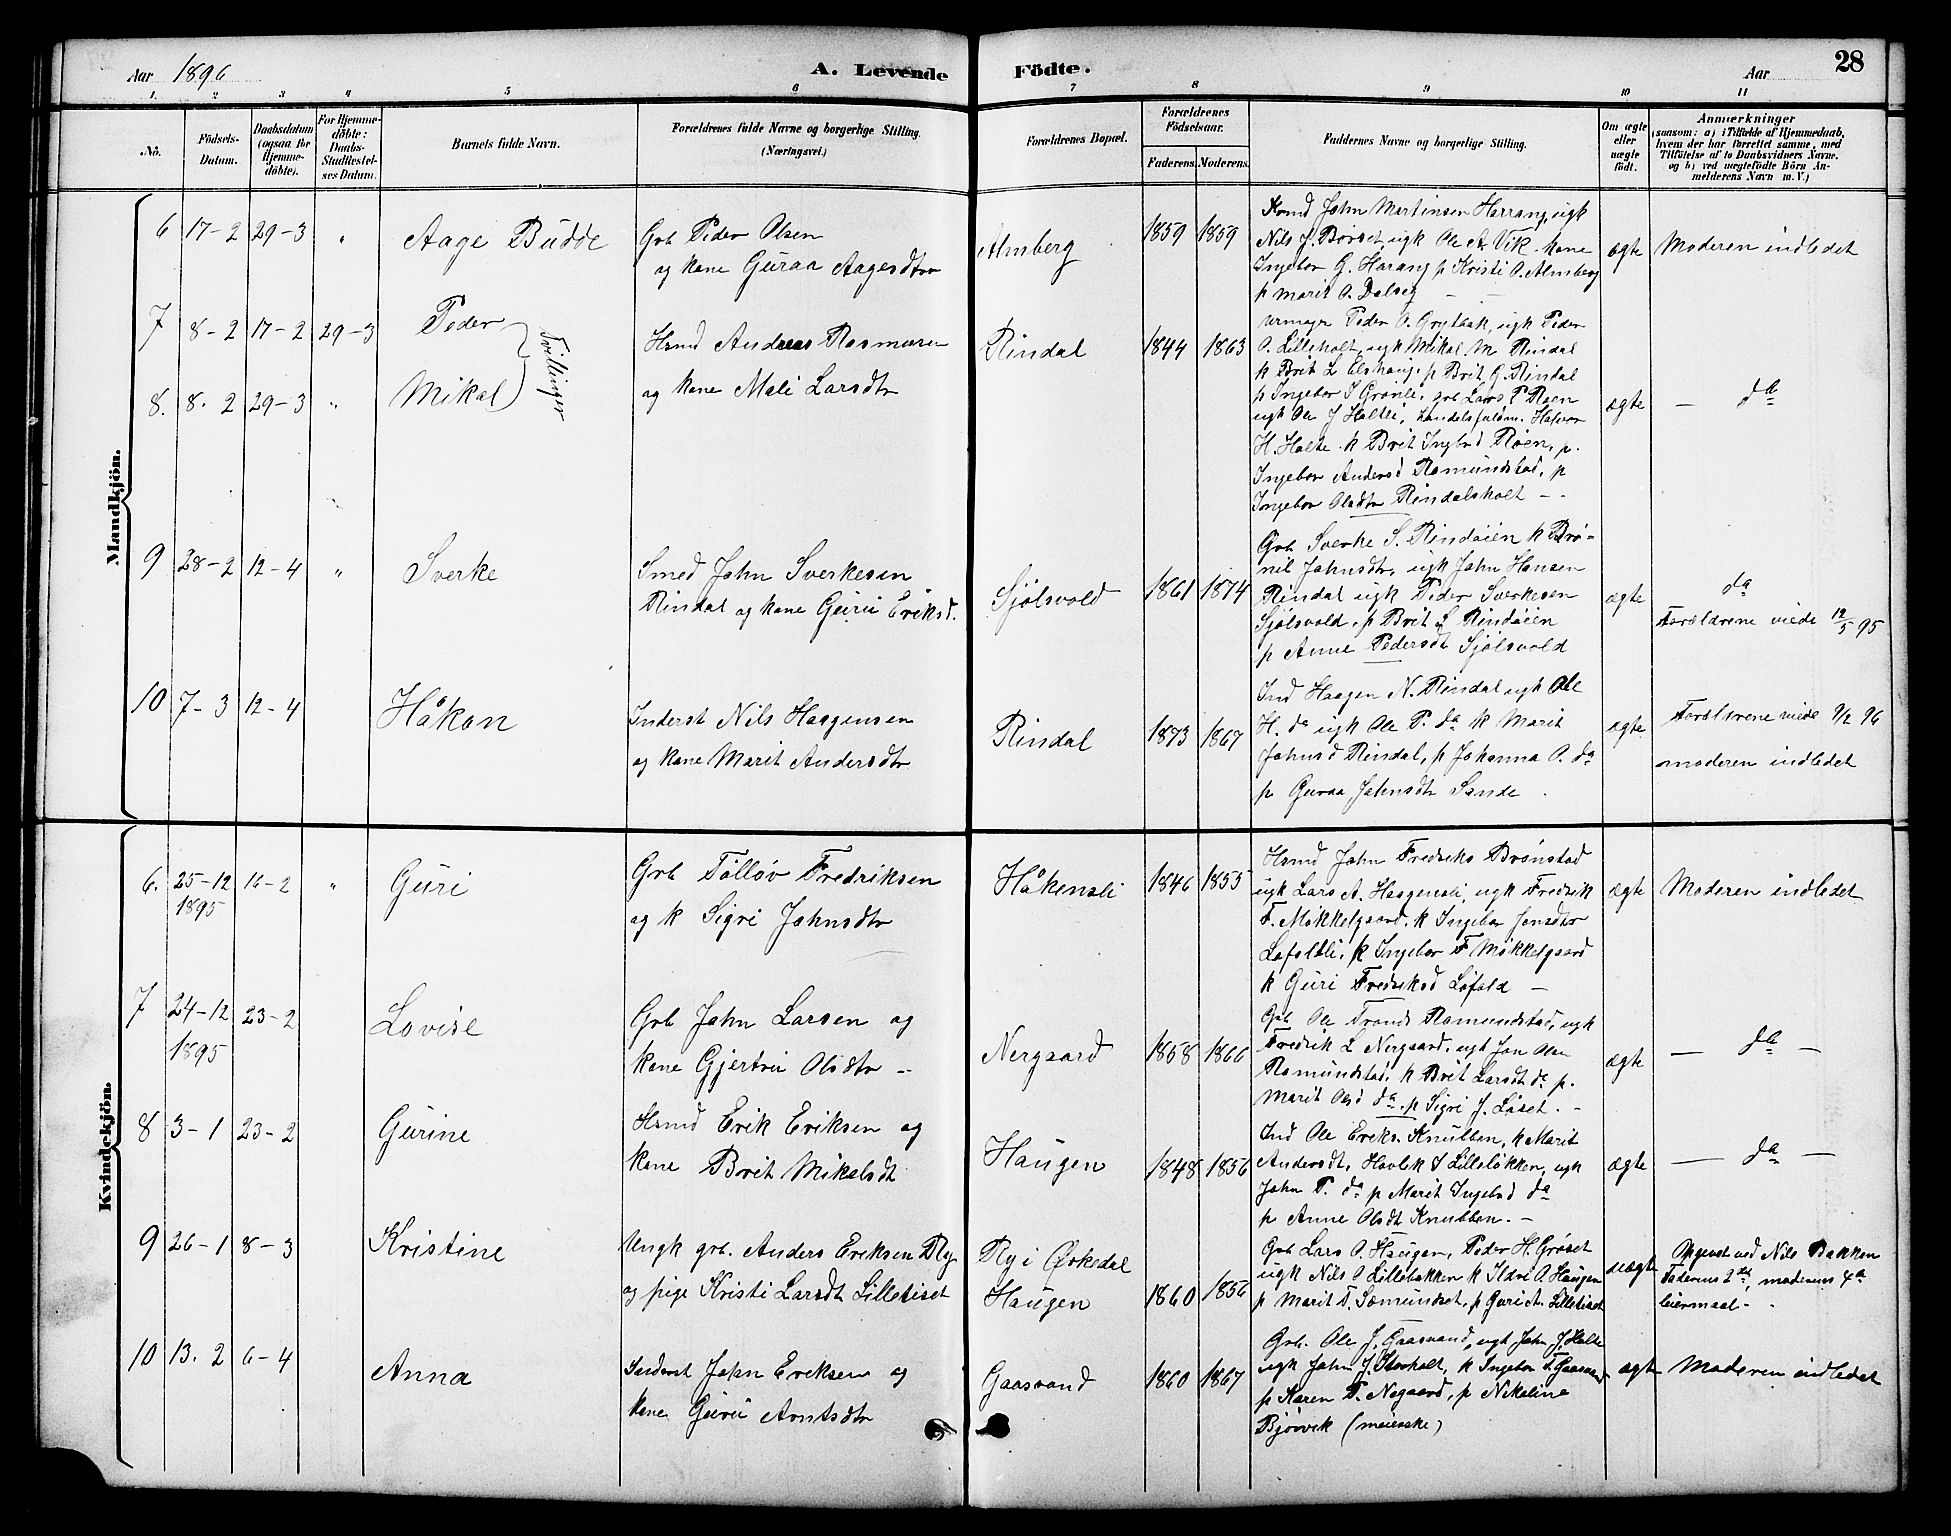 Aar 1896
A. Levende
Födte.
Aar
28
1. 2 3 4 5 6 7 8 9 10 11
No.
Födsels-
Datum.
Daabsdatum
(ogsaa for
Hjemme-
döbte).
For Hjemme-
döbte:
Daabs-
Stadfæstel-
ses Datum.
Barnets fulde Navn.
Forældrenes fulde Navne og borgerlige Stilling.
(Næringsvei.)
Forældrenes Bopæl.
Forældrenes
Födselsaar.
Faderens. Moderens.
Faddernes Navne og borgerlige Stilling.
Om ægte
eller
uægte
födt.
Anmærkninger
(saasom: a) i Tilfælde af Hjemmedaab,
hvem der har forrettet samme, med
Tilföielse af to Daabsvidners Navne.
og b) ved uægtefödte Börn An-
melderens Navn m. V.)
Mandkjön.
6 17-2 29-3 "
Aage Budde
Grb Peder Olsen
og kone Guraa Aagesdtr
Almberg
1859 1859
John Martinsen Harang, ugk
Nils J. Børset, ugk Ole A. Vik. kone
Ingebor G. Harang p Kristi O. Almberg
p Marit O. Dalseg
ægte
Moderen indledet
7 8-2 17-2 29-3
Peder
8. 8. 2 29-3 "
Mikal
Tvillinger
Hsmd Andreas Rasmusen
og kone Mali Larsdtr
Rindal
1844 1863
Peder O. Grytbak, ugk Peder
O. Lilleholt, ugk Mikal M Rindal
k Brit L Elshaug. p Brit G. Rindal
p Ingebor I Grønli, grb Lars P Roen
ugk Ole J Holtli, Handelsfuldm. Halvor
H. Holte. k Brit Ingebd Røen, p.
Ingebor Andersd Romundstad, p
Ingebor Olsdtr Rindalsholt - -
ægte
- da
9 28-2 12-4 "
Sverke
Smed John Sverkesen
Rindal og kone Guru Eriksd.
Sjølsvold
1861 1874
Grb Sverke S. Rindøien k Brø-
nil Johnsdtr, ugk John Hansen
Rindal ugk Peder Sverkesen
Sjølsvold. p Brit S Rindøien
p Anne Pedersdt Sjølsvold
ægte
da
Forældrene viede 12/5 95
10 7-3 12-4
Håkon
Inderst Nils Haagensen
og kone Marit Andersdtr
Rindal
1873 1867
Ind Haagen N. Rindal ugk Ole
H. da ugk Ole P. da k Marit
Johnsd Rindal, p Johanna O. da
p Guraa Johnsdtr Sande.
ægte
Forældrene viede 9/2 96
moderen indledet
Kvindekjön.
6. 25-12 16-2 "
1895
Guri
Grb Tølløv Fredriksen
og k Sigri Johnsdtr
Håkensli
1846 1855
Hsmd John Fredriks Brønstad
ugk Lars A. Haagensli, ugk Fredrik
F. Møkkelgaard. k Ingebor Jonsdtr
Løfoldli, k Ingebor F Møkkelgaard
k Guri Fredriksd Løfold -
ægte
Moderen indledet
7 24-12 23-2
1895
Lovise
Grb John Larsen og
kone Gjertru Olsdtr -
Nergaard
1858 1866
Grb Ole Tronds Romundstad, ugk
Fredrik L Nergaard, ugk Jon Olsen
Romundstad, k Brit Larsdt da p.
Marit Olsd da. p Sigri J. Løset. -
ægte
- da -
8 3-1 23-2
Gurine
Hsmd Erik Eriksen og
kone Brit Mikalsdt
Haugen
1848 1856
Ind Ole Eriks. Knubben, k Marit
Andersdt, Havlk I Lilleløkken, ugk
John P. da p Marit Ingebd da
p Anne Olsdt Knubben. -
ægte
- da -
9 26-1 8-3
Kristine
Ungk grb. Anders Eriksen Ry
og pige Kristi Larsdt Lilletiset
Ry i Ørkedal
Haugen
1860 1856
Grb Lars O. Haugen, Peder H. Grøset
ugk Nils O Lillebakken k Ildri O. Haugen
p Marit T. Sæmundset, p Guri A. Lilletiset
uægte
Opgivet ved Nils Bakken
Faderens 2det moderens 4de
leiermaal. -
10 13. 2 6-4
Anna
Inderst John Eriksen og
kone Guru Arntsdtr
Gaasvand
1860 1867
Grb. Ole J. Gaasvand, ugk John J. Holte
ugk John J. Storholt, k Ingebor T. Gaasvand
p Karen T. Negaard, p Nikoline
Bjørvik (meierske)
ægte
Moderen indledet